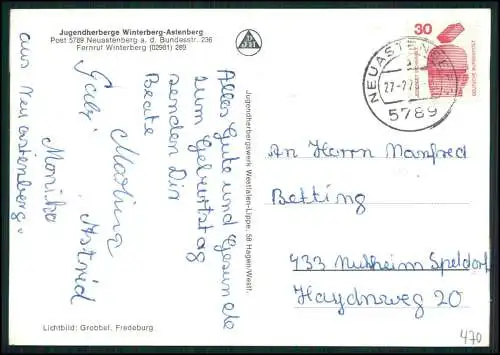 Jugendherberge Winterberg-Astenberg
Post 5789 Neuastenberg a. d. Bundesstr. 236
Fernruf Winterberg (02981) 289
Alles Gute und Gesunde
zum Geburtstag
senden Dir
Beate
Martina
Gabi. Astrid
Monika
aus Neuastenberg.
Jugendherbergwerk Westfalen-Lippe, 58 Hagen/Westf.
30
NEUASTENBERG
27-7.7
5789
An Herrn Manfred
Betting
433 Mülheim Speldorf
Haydnweg 20
Lichtbild: Grobbel, Fredeburg.
470